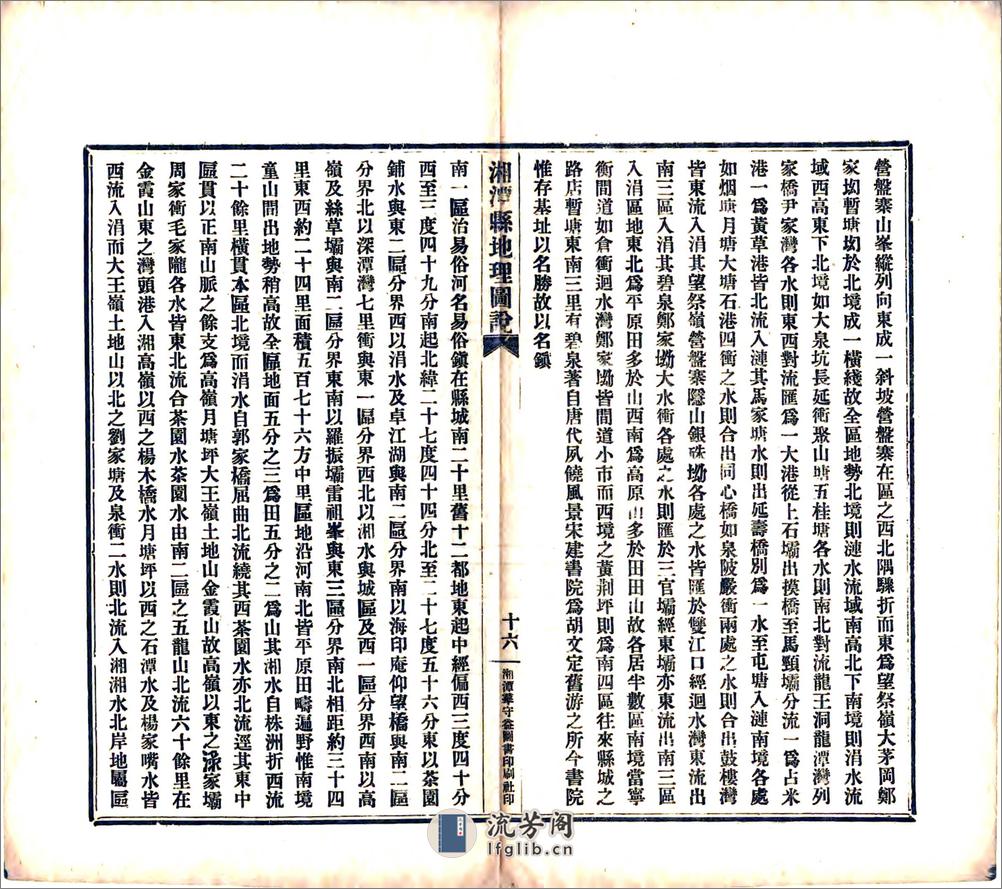 營盤寨山峯縱列向東成一斜坡營盤寨在區之西北隅驟折而東爲望祭嶺大茅岡鄭
家坳暫塘坳於北境成一橫綫故全區地勢北境則漣水流域南高北下南境則涓水流
域西高東下北境如大泉坑長延衝聚山塘五桂塘各水則南北對流龍王洞龍潭灣列
家橋尹家灣各水則東西對流匯爲一大港從上石壩出摸橋至馬頸壩分流一爲占米
港一爲黃草港皆北流入漣其馬家塘水則出延壽橋別爲一水至屯塘入漣南境各處
如烟塘月塘大塘石港四衝之水則合出同心橋如泉陂嚴衝兩處之水則合出鼓樓灣
皆東流入涓其望祭嶺營盤寨隱山銀珠坳各處之水皆匯於雙江口經迴水灣東流出
南三區入涓其碧泉鄭家坳大水衝各處之水則匯於三官壩經東壩亦東流入南三區
入涓區地東北爲平原田多於山西南爲高原山多於田田山故各居半數區南境當寧
衡間道如倉衝迴水灣鄭家坳皆間道小市而西境之黃荆坪則爲南四區往來縣城之
路店暫塘東南三里有碧泉著自唐代夙饒風景宋建書院爲胡文定舊游之所今書院
惟存基址以名勝故以名鎮
湘潭縣地理圖說
十六
湘潭華守益圖書印刷社印
南一區治易俗河名易俗鎮在縣城南二十里舊十二都地東起中經偏西三度四十分
西至三度四十九分南起北緯二十七度四十四分北至二十七度五十六分東以茶園
鋪水與東二區分界西以涓水及卓江湖與南二區分界南以海印庵仰望橋與南二區
分界北以深潭灣七里衝與東一區分界西北以湘水與城區及西一區分界西南以高
嶺及絲草壩與南二區分界東南以羅振壩雷祖峯與東三區分界南北相距約三十四
里東西約二十四里面積五百七十六方中里區地沿河南北皆平原田疇遍野惟南境
童山間出地勢稍高故全區地面五分之三爲田五分之二爲山其湘水自株洲折西流
二十餘里橫貫本區北境而涓水自郭家橋屈曲北流繞其西茶園水亦北流逕其東中
區貫以正南山脈之餘支爲高嶺月塘坪大王嶺土地山金霞山故高嶺以東之淥家壩
周家衝毛家隴各水皆東北流合茶園水茶園水由南二區之五龍山北流六十餘里在
金霞山東之灣頭港入湘高嶺以西之楊木橋水月塘坪以西之石潭水及楊家嘴水皆
西流入涓而大王嶺土地山以北之劉家塘及泉衝二水則北流入湘湘水北岸地屬區
流芳阁
lfglib.cn